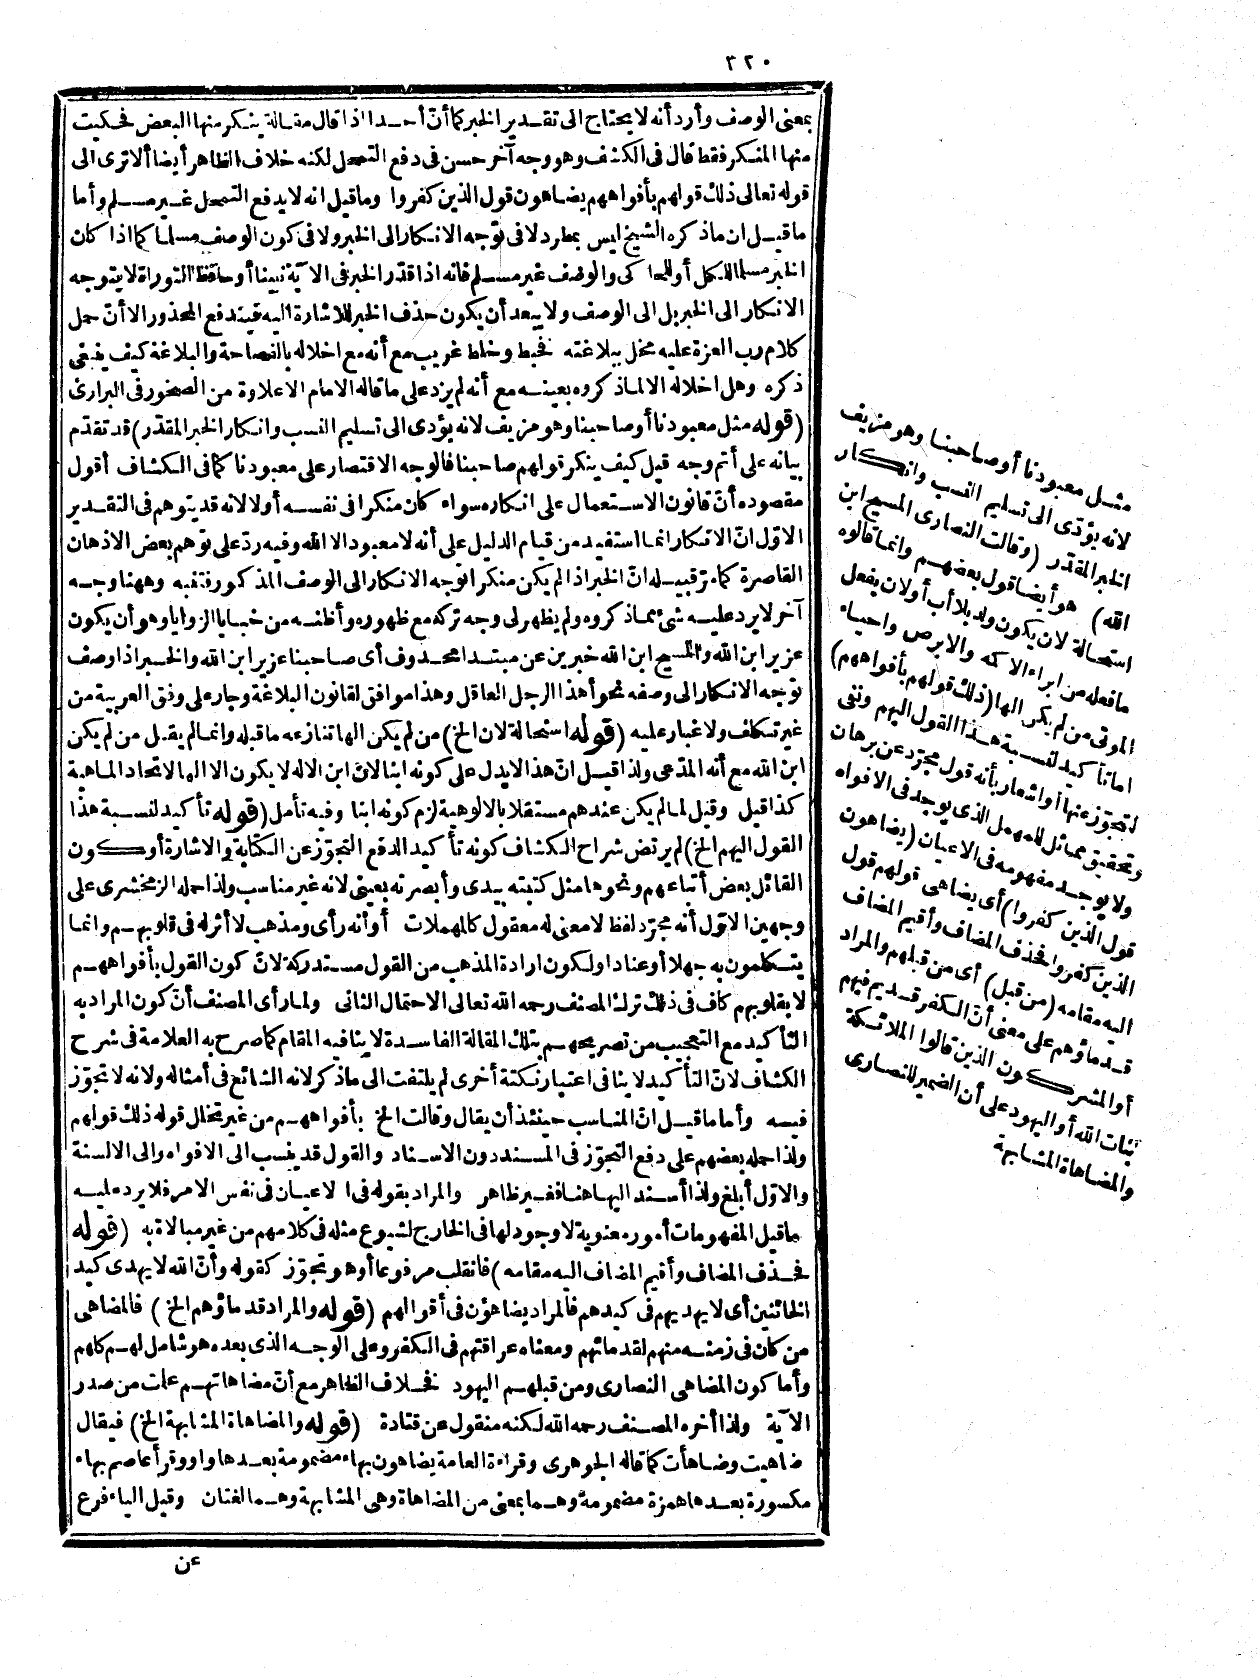 ٣٢٠
بمعنى الوصف وأرد أنه لا يحتاج الى تقدير الخبر كما أنّ أحدا اذا قال مقالة ينكر منها البعض فحكيت
منها المنكر فقط قال فى الكشف وهو وجه آخر حسن فى دفع التمحل لكنه خلاف الظاهر أيضا ألا ترى الى
قوله تعالى ذلك قولهم بأفواههم يضاهون قول الذين كفروا وما قيل انه لا يدفع التمحل غير مسلم وأما
ما قيل ان ما ذكره الشيخ ليس بمطرد لا فى توّجه الانكار الى الخبر ولا فى كون الوصف مسلما كما اذا كان
الخبر مسلما للكل أو للحاكى والوصف غير مسلم فانه اذا قدّر الخبر فى الآية نبينا أو حافظ التوراة لا يتوجه
الانكار الى الخبر بل الى الوصف ولا يبعد أن يكون حذف الخبر للاشارة اليه فيندفع المحذور الا أنّ حمل
كلام رب العزة عليه مخل ببلاغته فخبط وخلط غريب مع أنه مع اخلاله بالفصاحة والبلاغة كيف ينبغى
ذكره وهل اخلاله الا لما ذكروه بعينه مع أنه لم يزد على ما قاله الامام الا علاوة من الصخور فى البرارى
(قوله مثل معبودنا أو صاحبنا وهو مزيف لانه يؤدى الى تسليم النسب وانكار الخبر المقدّر) قد تقدّم
بيانه على أتم وجه قيل كيف ينكر قولهم صاحبنا فالوجه الاقتصار على معبودنا كما فى الكشاف أقول
مقصوده أنّ قانون الاستعمال على انكاره سواء كان منكرا فى نفسه أولا لانه قد يتوهم فى التقدير
الاوّل انّ الانكار انما استفيد من قيام الدليل على أنه لا معبود الا الله وفيه ردّ على توّهم بعض الاذهان
القاصرة كما ترقبيه له انّ الخبر اذا لم يكن منكرا توجه الانكار الى الوصف المذكور فتنبه وههنا وجه
آخر لا يرد عليه شئ مما ذكروه ولم يظهر لى وجه تركه مع ظهوره وأظنه من خبايا الزوايا وهو أن يكون
عزير ابن الله والمسيح ابن الله خبرين عن مبتدا محذوف أى صاحبنا عزير ابن الله والخبر اذا وصف
توّجه الانكار الى وصفه نحو أهذا الرجل العاقل وهذا موافق لقانون البلاغة وجار على وفق العربية من
غير تكلف ولا غبار عليه (قوله استحالة لان الخ) من لم يكن الها تنازعه ما قبله وانما لم يقل من لم يكن
ابن الله مع أنه المدّعى ولذا قيل انّ هذا لا يدل على كونه ابنا لانّ ابن الاله لا يكون الا الها لاتحاد الماهية
كذا قيل وقيل لما لم يكن عندهم مستقلا بالالوهية لزم كونه ابنا وفيه تأمل (قوله تأكيد لنسبة هذا
القول اليهم الخ) لم يرتض شراح الكشاف كونه تأكيدا لدفع التجوّز عن الكتابة والاشارة أو كون
القائل بعض أتباعهم ونحوها مثل كتبته بيدى وأبصرته بعينى لانه غير مناسب ولذا حمله الزمخشرى على
وجهين الاوّل أنه مجرّد لفظ لا معنى له معقول كالمهملات أو أنه رأى ومذهب لا أثر له فى قلوبهم وانما
يتكلمون به جهلا أو عنادا ولكون ارادة المذهب من القول مستدركة لانّ كون القول بأفواههم
لا بقلوبهم كاف فى ذلك ترك المصنف رحمه الله تعالى الاحتمال الثانى ولما رأى المصنف أنّ كون المراد به
التأكيد مع التعجيب من تصريحهم بتلك المقالة الفاسدة لا ينافيه المقام كما صرح به العلامة فى شرح
الكشاف لانّ التأكيد لا ينافى اعتبار نكتة أخرى لم يلتفت الى ما ذكر لانه الشائع فى أمثاله ولانه لا تجوّز
فيه وأما ما قيل انّ المناسب حينئذ أن يقال وقالت الخ بأفواههم من غير تخلل قوله ذلك قولهم
ولذا حمله بعضهم على دفع التجوّز فى المسند دون الاسناد والقول قد ينسب الى الافواه والى الالسنة
والاوّل أبلغ ولذا أسند اليها هنا فغير ظاهر والمراد بقوله فى الاعيان فى نفس الامر فلا يرد عليه
ما قيل المفهومات أمور معنوية لا وجود لها فى الخارج لشيوع مثله فى كلامهم من غير مبالاة به (قوله
فحذف المضاف وأقيم المضاف اليه مقامه) فانقلب مرفوعا أو هو تجوّز كقوله وأنّ الله لا يهدى كيد
الخائنين أى لا يهديهم فى كيدهم فالمراد يضاهؤن فى أقوالهم (قوله والمراد قدماؤهم الخ) فالمضاهى
من كان فى زمنه منهم لقدمائهم ومعناه عراقتهم فى الكفر وعلى الوجه الذى بعده هو شامل لهم كلهم
وأما كون المضاهى النصارى ومن قبلهم اليهود فخلاف الظاهر مع أنّ مضاهاتهم علمت من صدر
الآية ولذا أخره المصنف رحمه الله لكنه منقول عن قتادة (قوله والمضاهاة المشابهة الخ) فيقال
ضاهيت وضاهأت كما قاله الجوهرى وقراءة العامة يضاهون بهاء مضمومة بعدها واو وقرأ عاصم بهاء
مكسورة بعدها همزة مضمومة وهما بمعنى من المضاهاة وهى المشابهة وهما لغتان وقيل الياء فرع
عن
مثل معبودنا أو صاحبنا وهو مزيف
لانه يؤدّى الى تسليم النسب وانكار
الخبر المقدر (وقالت النصارى المسيح ابن
الله) هو أيضا قول بعضهم وانما قالوه
استحالة لان يكون ولد بلا أب أو لان يفعل
ما فعله من ابراء الاكمه والابرص واحياء
الموتى من لم يكن الها (ذلك قولهم بأفواههم)
اما تأكيد لنسبة هذا القول اليهم ونفى
لتجوّز عنها أو اشعار بأنه قول مجرّد عن برهان
وتحقيق مماثل للمهمل الذى يوجد فى الافواه
ولا يوجد مفهومه فى الاعيان (يضاهون
قول الذين كفروا) أى يضاهى قولهم قول
الذين كفروا فحذف المضاف وأقيم المضاف
اليه مقامه (من قبل) أى من قبلهم والمراد
قدماؤهم على معنى أنّ الكفر قديم فيهم
أو المشركون الذين قالوا الملائكة
بنات الله أو اليهود على أن الضمير للنصارى
والمضاهاة المشابهة